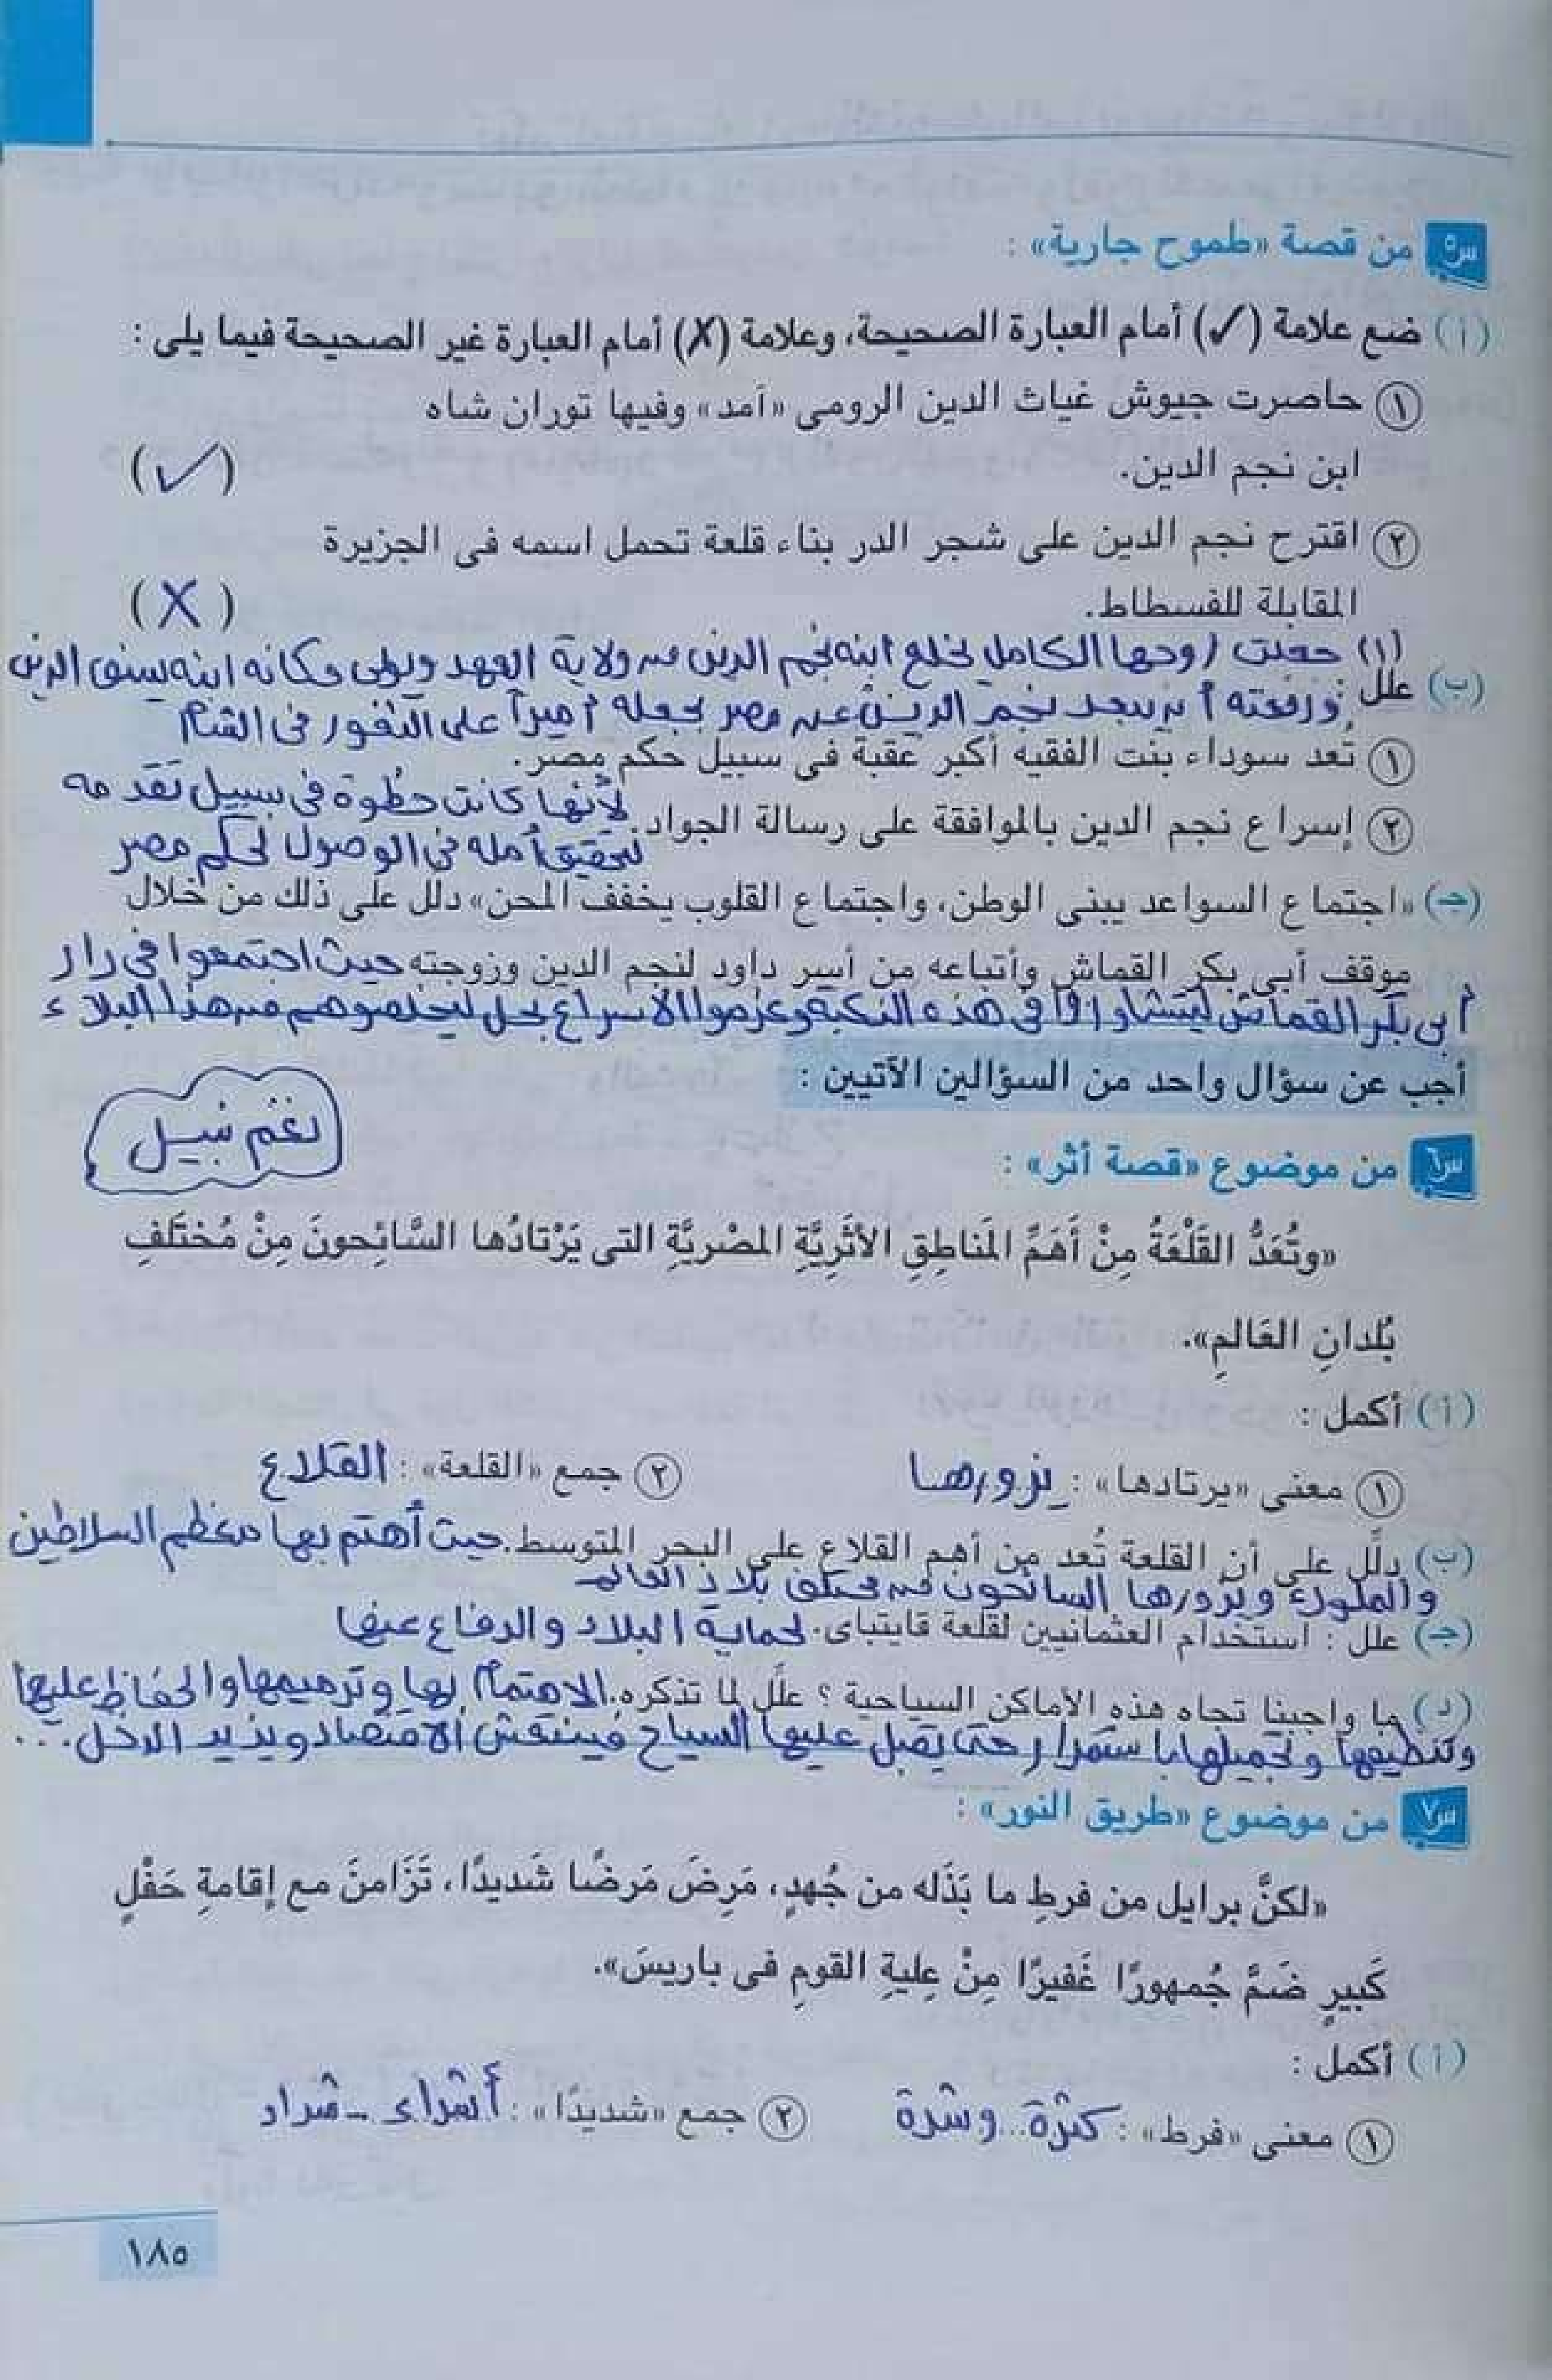 س٥ من قصة «طموح جارية» :
(أ) ضع علامة (✓) أمام العبارة الصحيحة، وعلامة (X) أمام العبارة غير الصحيحة فيما يلى :
١ حاصرت جيوش غياث الدين الرومى «آمد» وفيها توران شاه
ابن نجم الدين. (✓)
٢ اقترح نجم الدين على شجر الدر بناء قلعة تحمل اسمه فى الجزيرة
المقابلة للفسطاط. (X)
(١) جعلت زوجها الكامل يخلع ابنه نجم الدين من ولاية العهد ويولى مكانه ابنه سيف الدين
(ب) علل : ودفعته أن يبعد نجم الدين عن مصر بجعله أميراً على الثغور فى الشام
١ تُعد سوداء بنت الفقيه أكبر عقبة فى سبيل حكم مصر.
لأنها كانت خطوة فى سبيل تقدمه
٢ إسراع نجم الدين بالموافقة على رسالة الجواد.
لتحقيق أمله فى الوصول لحكم مصر
(جـ) «اجتماع السواعد يبنى الوطن، واجتماع القلوب يخفف المحن» دلل على ذلك من خلال
موقف أبى بكر القماش وأتباعه من أسر داود لنجم الدين وزوجته حيث اجتمعوا فى دار
أبى بكر القماش ليتشاوروا فى هذه النكبة وعزموا الإسراع بحل ليخلصوهم من هذا البلاء
أجب عن سؤال واحد من السؤالين الآتيين :
نغم نبيل
س٦ من موضوع «قصة أثر» :
«وتُعَدُّ القَلْعَةُ مِنْ أَهَمِّ المَناطِقِ الأَثَرِيَّةِ المصْرِيَّةِ التى يَرْتادُها السَّائِحونَ مِنْ مُخْتَلَفِ
بُلدانِ العَالمِ».
(أ) أكمل :
١ معنى «يرتادها» : يزورها ٢ جمع «القلعة» : القلاع
(ب) دلِّل على أن القلعة تُعد من أهم القلاع على البحر المتوسط. حيث أهتم بها معظم السلاطين
والملوك ويزورها السائحون من مختلف بلاد العالم
(جـ) علل : استخدام العثمانيين لقلعة قايتباى. لحماية البلاد والدفاع عنها
(د) ما واجبنا تجاه هذه الأماكن السياحية ؟ علِّل لما تذكره. الاهتمام بها وترميمها والحفاظ عليها
وتنظيفها وتجميلها باستمرار حتى يقبل عليها السياح فينتعش الاقتصاد ويزيد الدخل...
س٧ من موضوع «طريق النور» :
«لكنَّ برايل من فرطِ ما بَذَله من جُهدٍ، مَرِضَ مَرضًا شَديدًا، تَزَامنَ مع إقامةِ حَفْلٍ
كَبيرٍ ضَمَّ جُمهورًا غَفيرًا مِنْ عِليةِ القومِ فى باريسَ».
(أ) أكمل :
١ معنى «فرط» : كثرة وشدة ٢ جمع «شديدًا» : أشداء - شداد
١٨٥